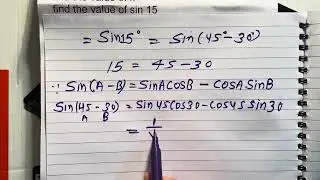 find the value of sin 15
= Sin15° = Sin(45°-30°)
15 = 45-30
∵ Sin(A-B) = SinACosB - CosASinB
Sin(45-30) = Sin45Cos30-Cos45Sin30
A B
= 1